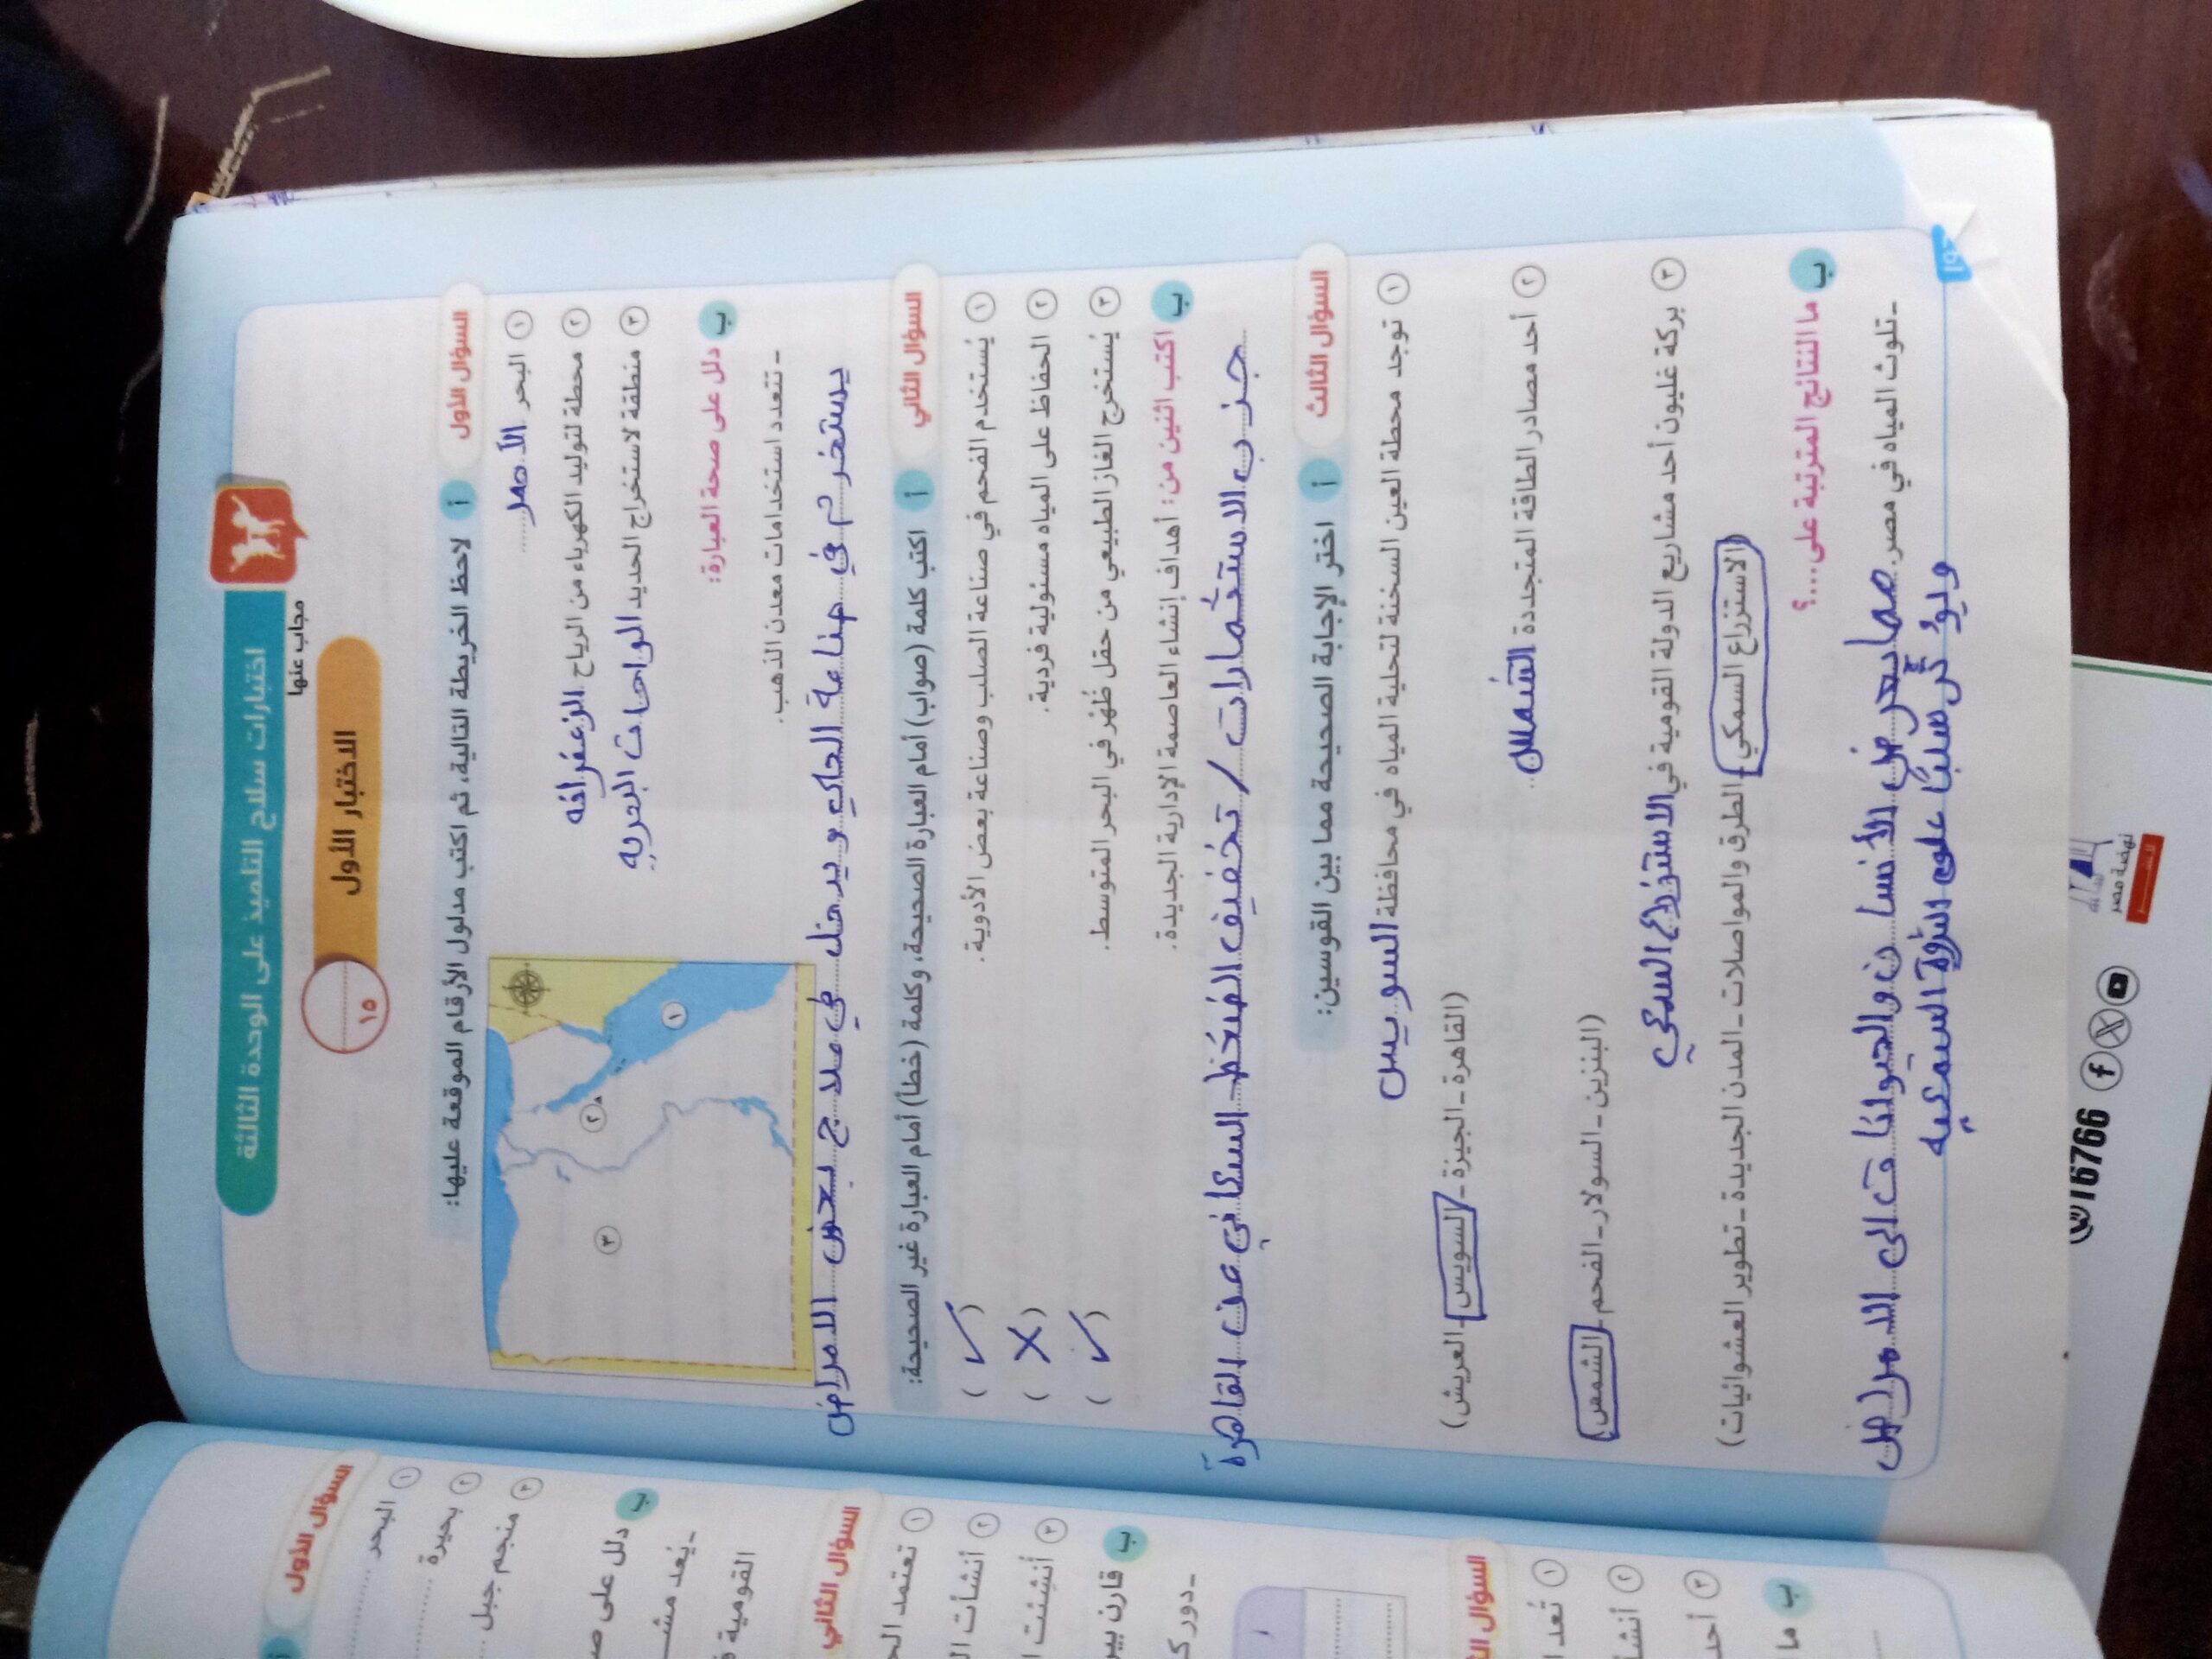 اختبارات سلاح التلميذ على الوحدة الثالثة
مجاب عنها
الاختبار الأول
١٥
السؤال الأول
أ لاحظ الخريطة التالية، ثم اكتب مدلول الأرقام الموقعة عليها:
١ البحر الأحمر
٢ محطة لتوليد الكهرباء من الرياح الزعفرانه
٣ منطقة لاستخراج الحديد الواحات البحريه
١
٢
٣
ب دلل على صحة العبارة:
- تتعدد استخدامات معدن الذهب.
يستخدم في صناعة الحلي ويدخل في علاج بعض الامراض
السؤال الثاني
أ اكتب كلمة (صواب) أمام العبارة الصحيحة، وكلمة (خطأ) أمام العبارة غير الصحيحة:
١ يُستخدم الفحم في صناعة الصلب وصناعة بعض الأدوية. (✓)
٢ الحفاظ على المياه مسئولية فردية. (X)
٣ يُستخرج الغاز الطبيعي من حقل ظُهر في البحر المتوسط. (✓)
ب اكتب اثنين من: أهداف إنشاء العاصمة الإدارية الجديدة.
جذب الاستثمارات / تخفيف الضغط السكاني عن القاهرة
السؤال الثالث
أ اختر الإجابة الصحيحة مما بين القوسين:
١ توجد محطة العين السخنة لتحلية المياه في محافظة السويس
(القاهرة - الجيزة - السويس - العريش)
٢ أحد مصادر الطاقة المتجددة الشمس.
(البنزين - السولار - الفحم - الشمس)
٣ بركة غليون أحد مشاريع الدولة القومية في الاستزراع السمكي
(الاستزراع السمكي - الطرق والمواصلات - المدن الجديدة - تطوير العشوائيات)
ب ما النتائج المترتبة على...؟
- تلوث المياه في مصر. مما يعرض الأنسان والحيوانات الى الامراض
ويؤثر سلبًا على الثروة السمكيه
١٩٤
16766
نهضة مصر
السؤال الأول
١ البحر
٢ بحيرة
٣ منجم جبل
ب دلل على ص
- يُعد مشـ
القومية
السؤال الثاني
١ تعتمد الح
٢ أنشأت ال
٣ أنشئت ا
ب قارن بين
- دور ك
السؤال الث
١ تُعد ا
٢ أنشأ
٣ أحد
ب ما